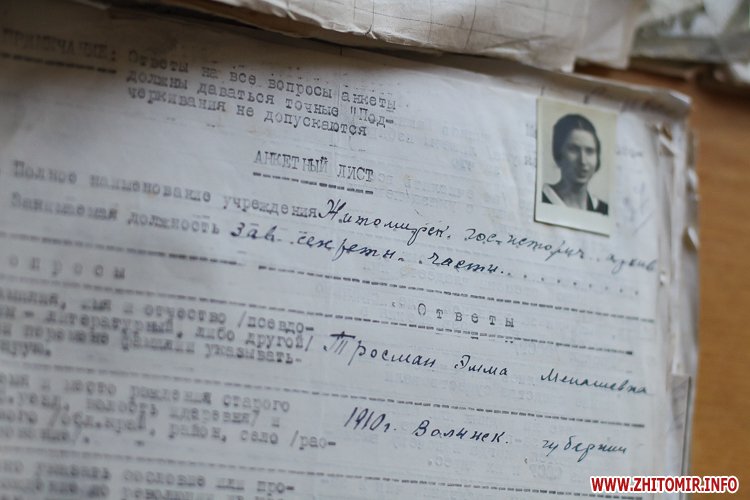 ПРИМЕЧАНИЕ: Ответы на все вопросы анкеты
должны даваться точные "Под-
черкивания не допускаются
АНКЕТНЫЙ ЛИСТ
Полное наименование учреждения Житомирск. гос. историч. архив
Занимаемая должность Зав. секретн. части
опросы
Ответы
амилия, имя и отчество /псевдо-
- литературный, либо другой/
перемене фамилии указывать
Тросман Эмма Менашевна
и место рождения старого
1910 г. Волинск. губернии
край, район, село /рас-
указать сословие или про-
WWW.ZHITOMIR.INFO